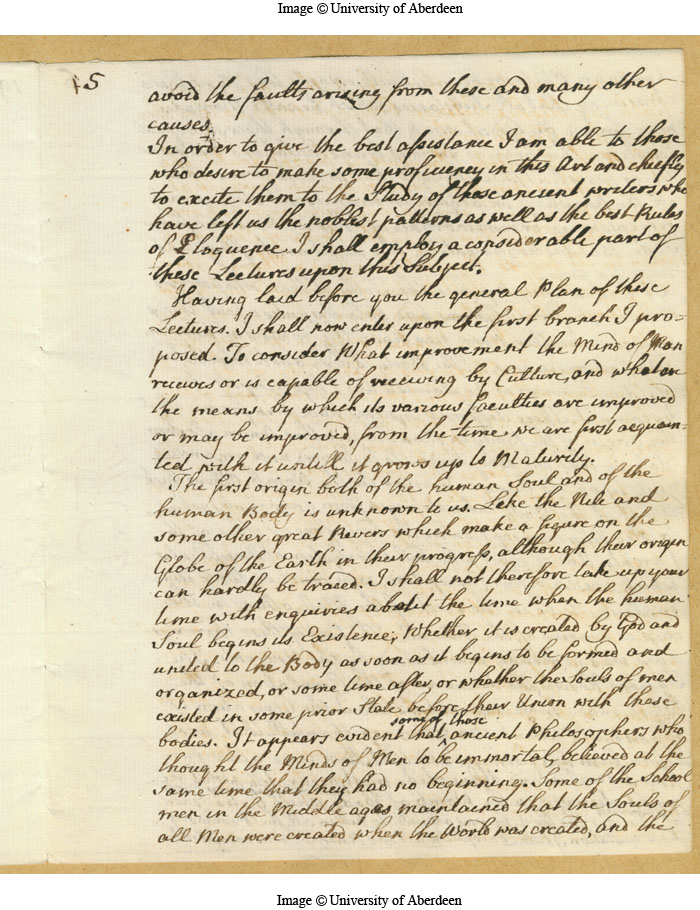 Image © University of Aberdeen
15
avoid the faults arising from these and many other
causes.
In order to give the best assistance I am able to those
who desire to make some proficiency in this Art and chiefly
to excite them to the Study of those ancient writers who
have left us the noblest patterns as well as the best Rules
of Eloquence I shall employ a considerable part of
these Lectures upon this Subject.
Having laid before you the general Plan of these
Lectures. I shall now enter upon the first branch I pro=
posed. To consider What improvement the Mind of Man
receives or is capable of receiving by Culture, and what are
the means by which its various faculties are improved
or may be improved, from the time we are first acquain=
ted with it untill it grows up to Maturity.
The first origin both of the human Soul and of the
human Body is unknown to us. Like the Nile and
some other great Rivers which make a figure on the
Globe of the Earth in their progress, although their origin
can hardly be traced. I shall not therefore take up your
time with enquiries about the time when the human
Soul begins its Existence; Whether it is created by God and
united to the Body as soon as it begins to be formed and
organized, or some time after, or whether the Souls of men
existed in some prior State before their Union with these
bodies. It appears evident that some of those ancient Philosophers who
thought the Minds of Men to be immortal, believed at the
same time that they had no beginning. Some of the School
men in the Middle ages maintained that the Souls of
all Men were created when the World was created, and the
Image © University of Aberdeen